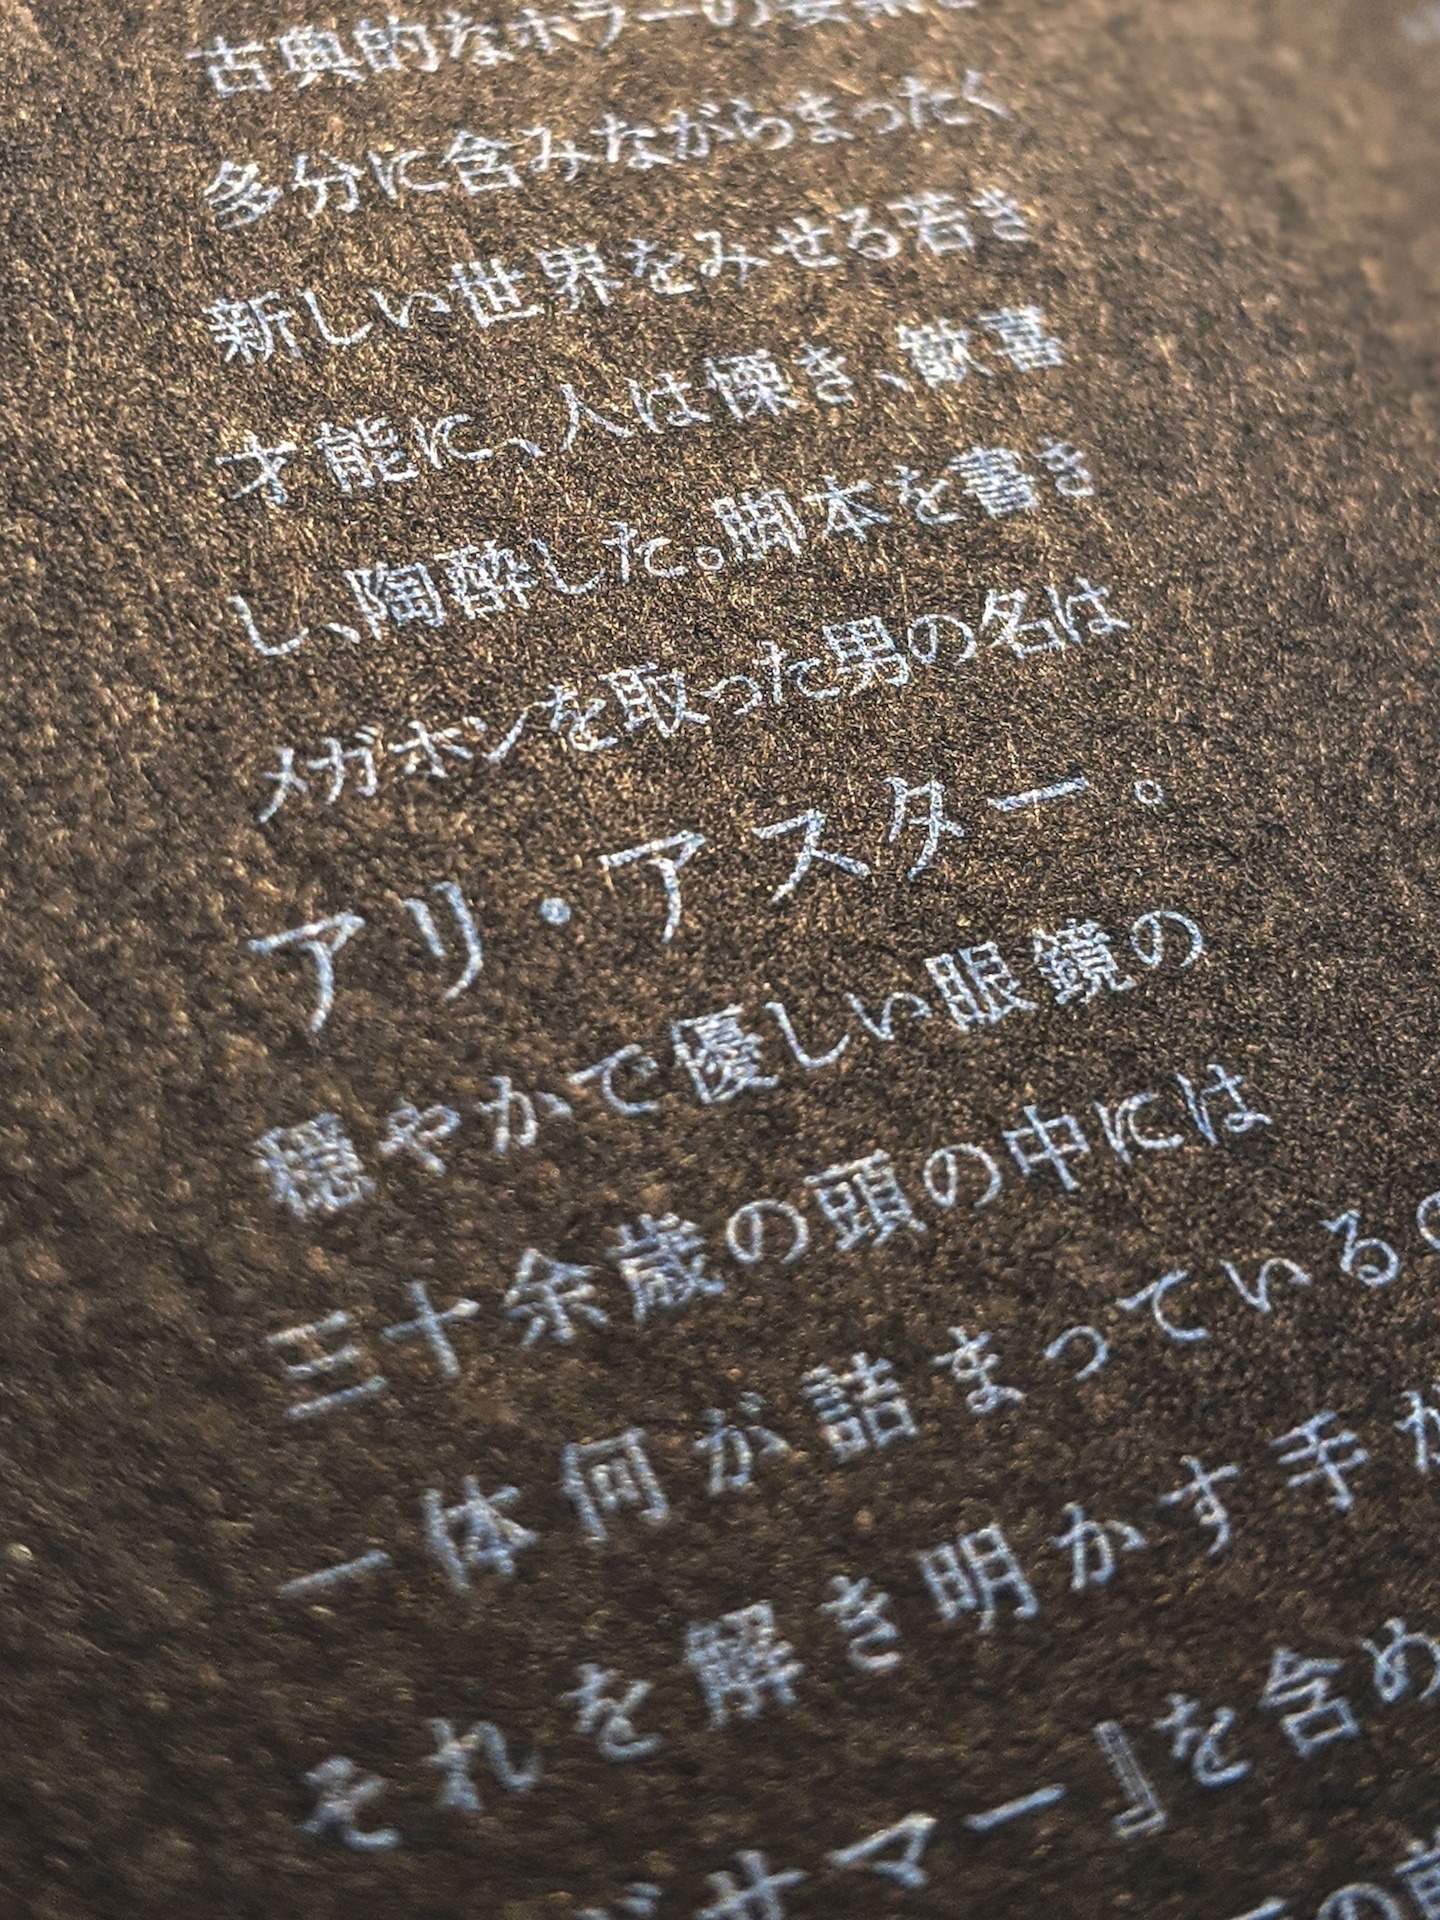 古典的なホラーの要素を
多分に含みながらまったく
新しい世界をみせる若き
才能に、人は慄き、歓喜
し、陶酔した。脚本を書き
メガホンを取った男の名は
アリ・アスター。
穏やかで優しい眼鏡の
三十余歳の頭の中には
一体何が詰まっている
それを解き明かす手が
サマー』を含め